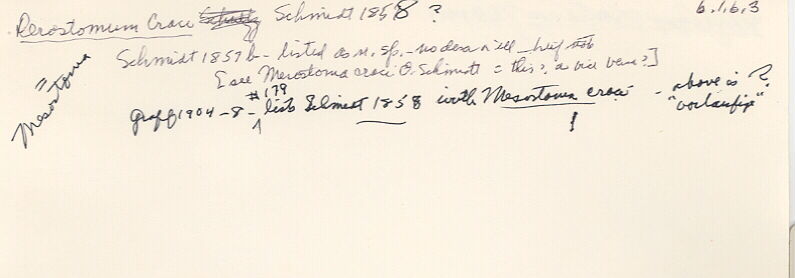 Derostomum Croci Schmidt 1858 ? 6.1.6.3
Schmidt 1857b - listed as n. sp. - no descr. n ill
[see Mesostoma croci O. Schmidt = this?, or vice versa?]
= Mesostoma
Graff 1904-8 - #179 lists Schmidt 1858 with Mesostoma croci - above is ?
!